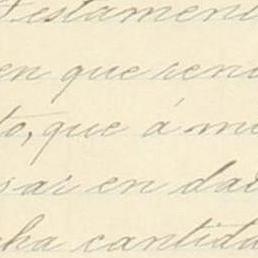 Testament
en que ren
to, que á m
sar en da
cha cantida